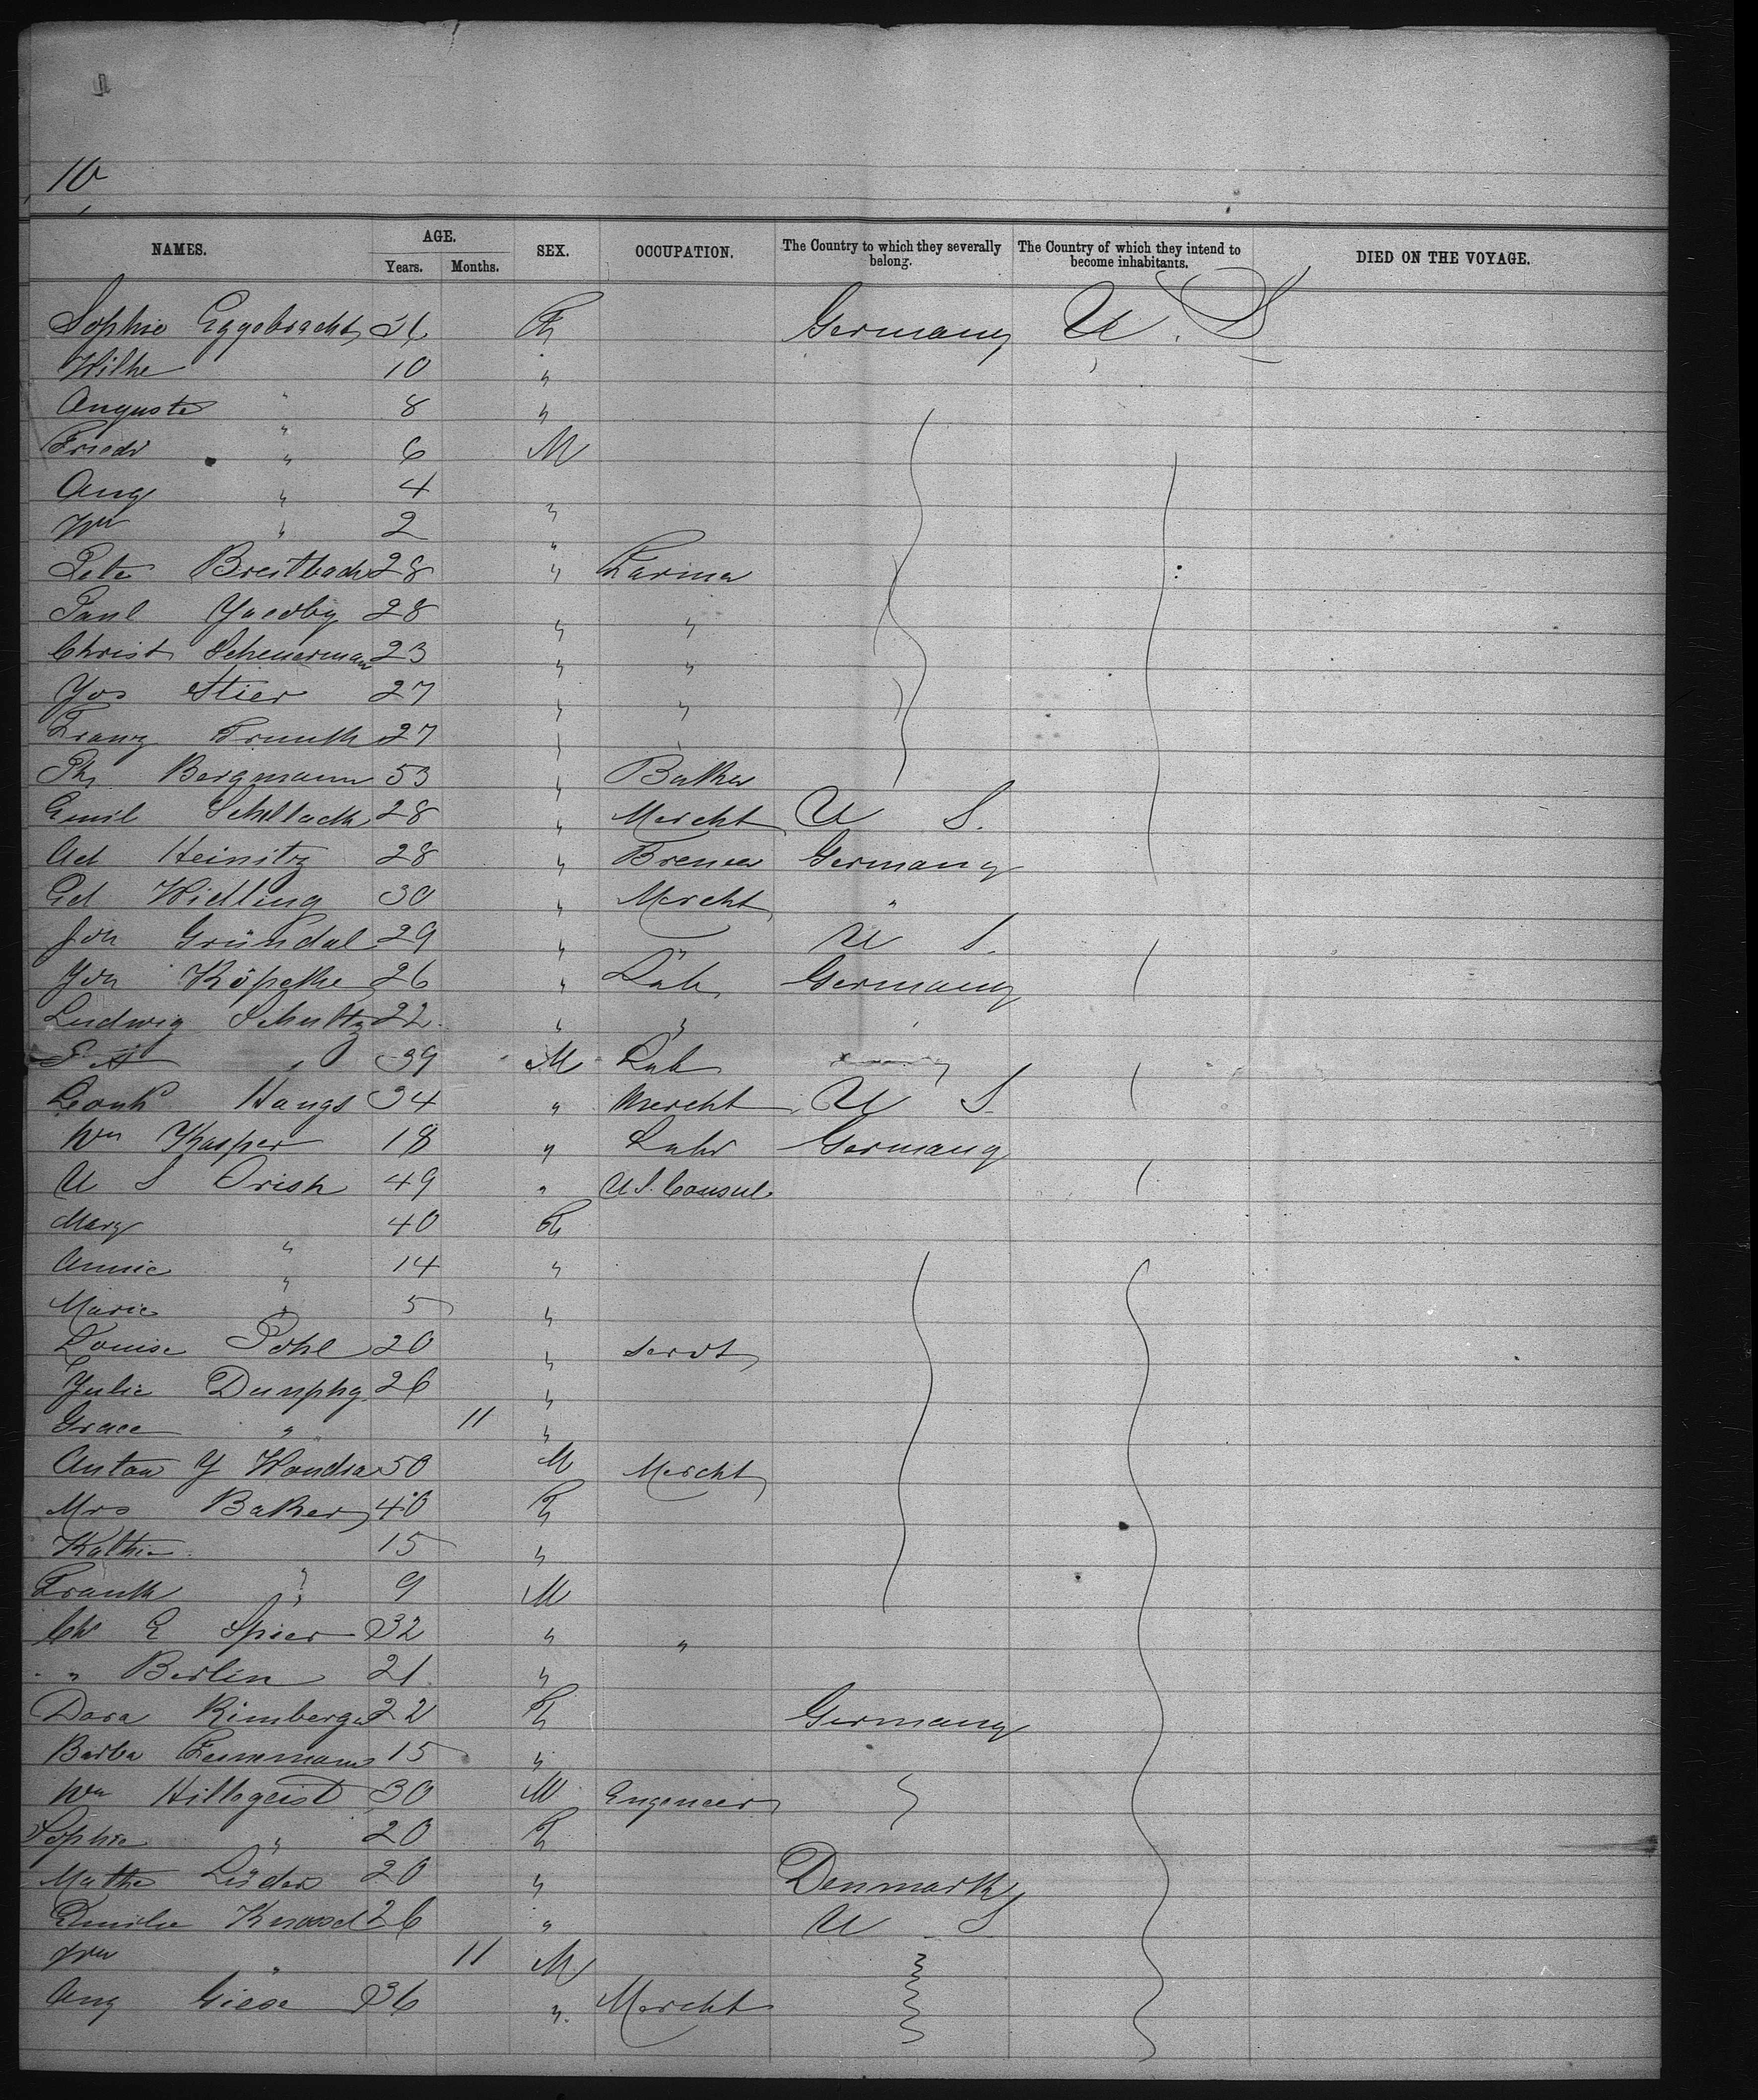 10
NAMES. AGE. Years. Months. SEX. OCCUPATION. The Country to which they severally belong. The Country of which they intend to become inhabitants. DIED ON THE VOYAGE.
Sophie Eggebracht Germany U. S
Wilhe 10 "
Auguste " 8 "
Friedr " 6 M
Aug " 4 "
Wm " 2 "
Pete Breitbach 28 " Farmer
Paul 28 " "
Christ Scheuerman 23 " "
Jos Stier 27 " "
Franz 27 "
Bergmann 53 "
Emil 28 " Mercht U S.
Ad Heinitz 28 " Germany
Ed Widling 30 " Mercht "
Joh Gründal 29 " " U S.
Joh Köpzke 26 " Lab Germany
Ludwig Schultz 22. " "
" 39 M Lab
Leonh Hangs 34 " Mercht U S
Wm Kasper 18 " Labr Germany
U S Orish 49 " U.S. Consul
Mary " 40 F
Annie " 14 "
Marie " 5 "
Louise Pohl 20 " Servt
Julie Dunphy 26 "
Grace " 11 "
Anton J Wondra 50 M Mercht
Mrs Baker 40 F
Kathie " 15 "
Frank " 9 M
Ch E Spier 32 " "
" Berlin 21 "
Dora Rimberger 22 F Germany
Barba 15 "
Wm Hillegeist 30 M Engeneer
Sophie " 20 F
Mathe Lüders 20 " Denmark
Emilie 26 " U S
Wm " 11 M
Aug Giese 36 " Mercht